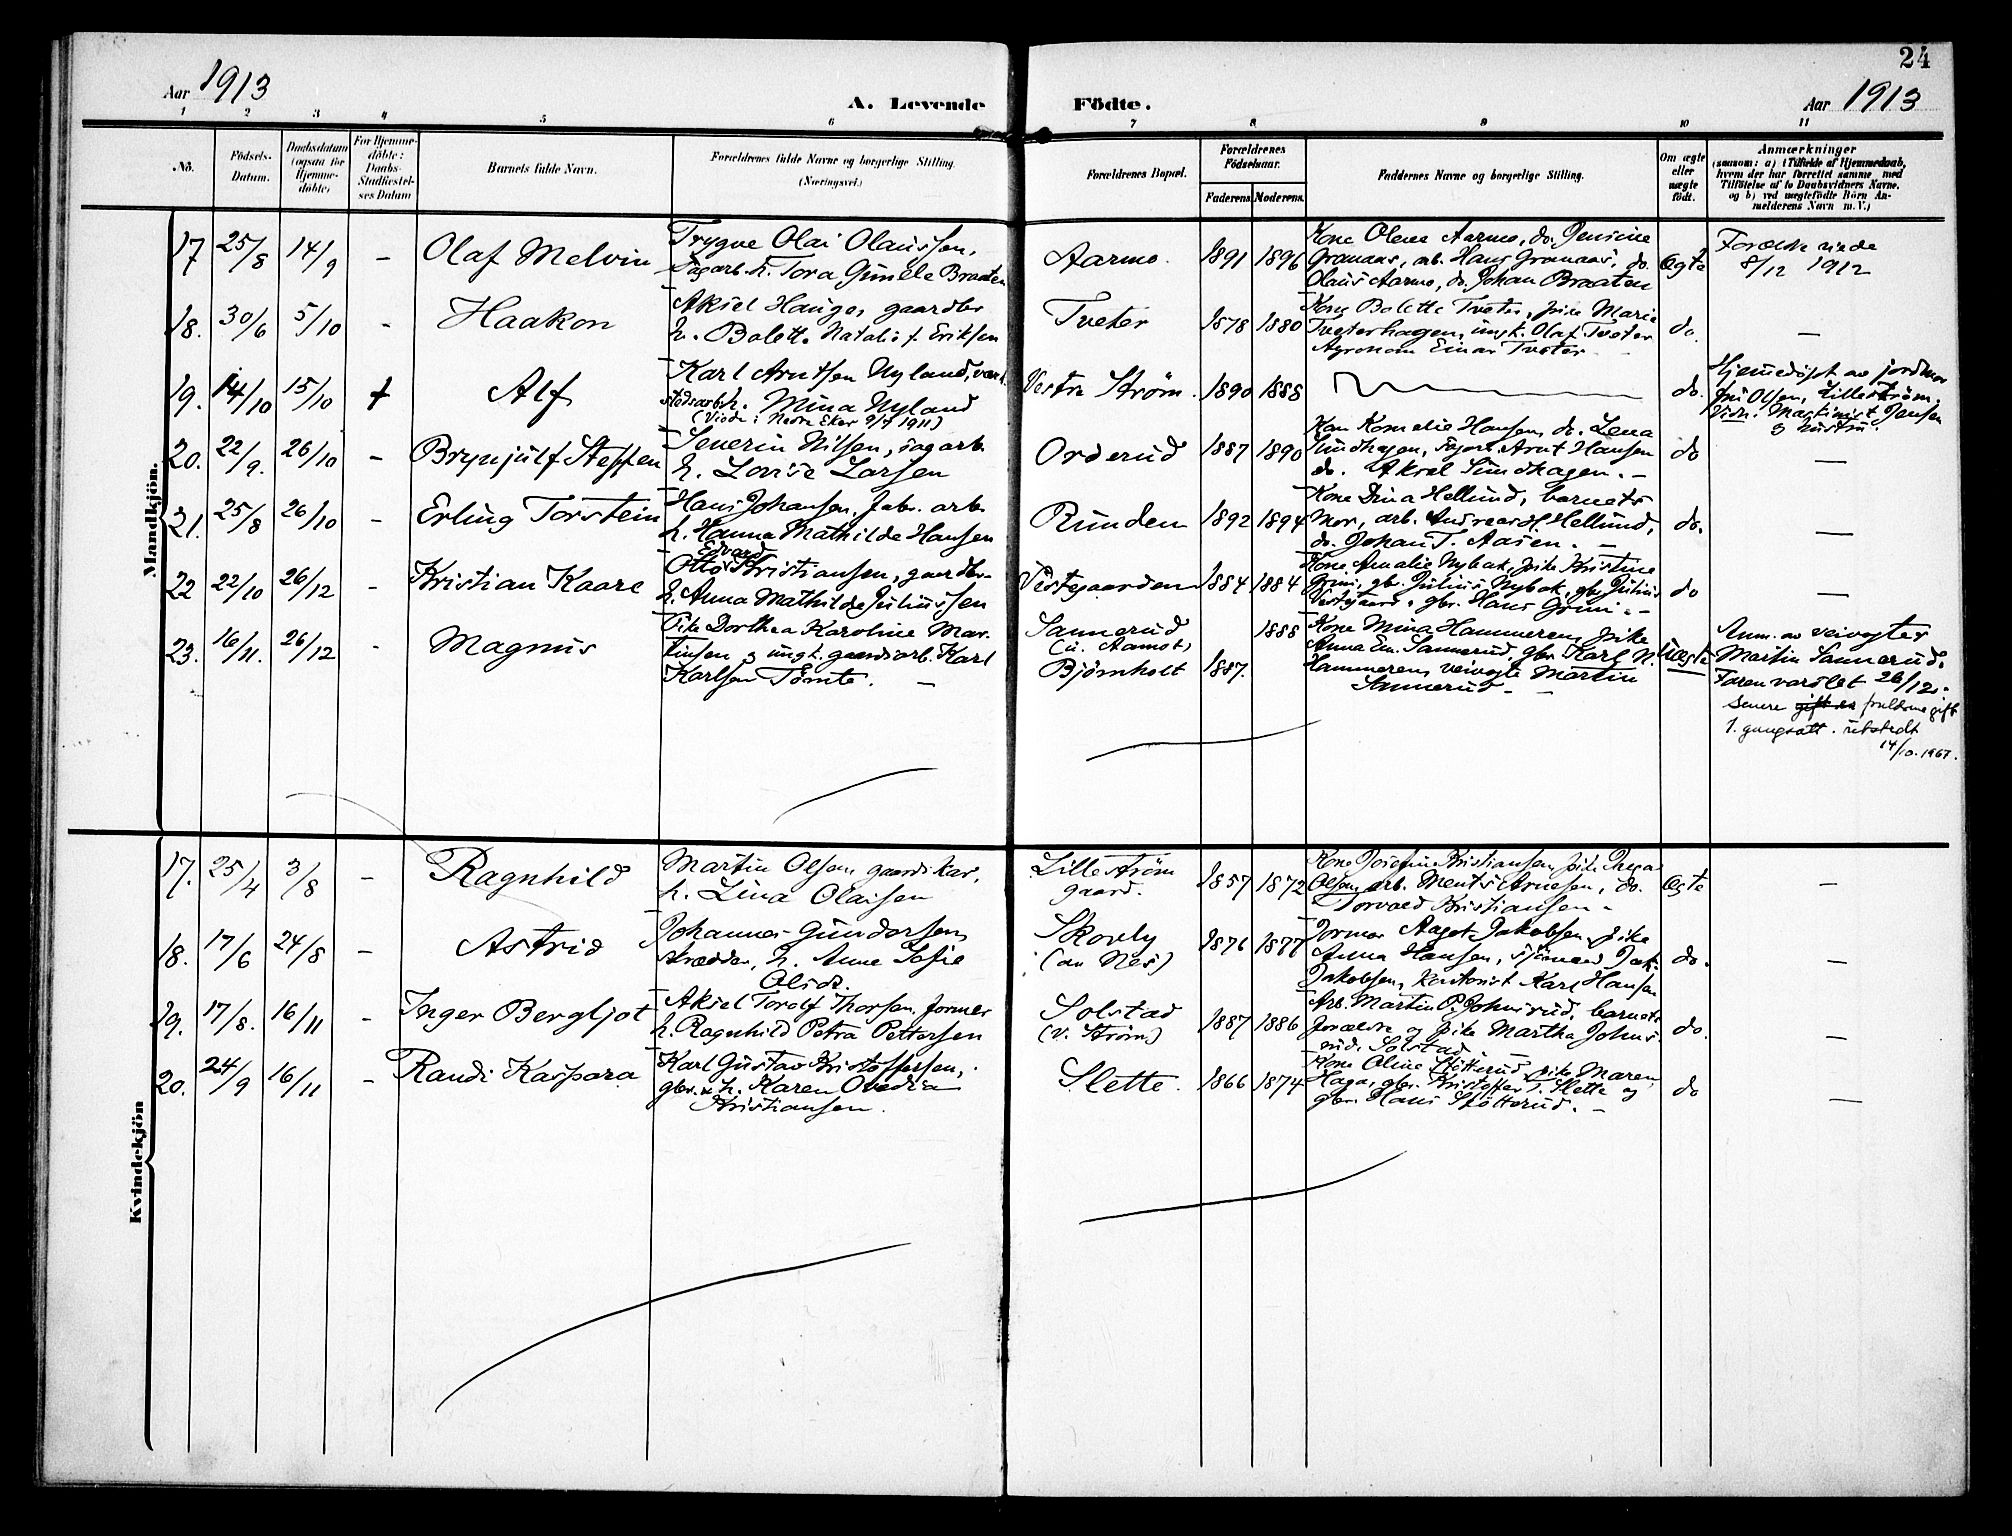 24
Aar 1913
A. Levende
Födte.
Aar 1913
1 2 3 4 5 6 7 8 9 10 11
No.
Födsels-
Datum.
Daabsdatum
(ogsaa for
Hjemme-
döbte)
For Hjemme-
döbte:
Daabs-
Stadfæstel-
ses Datum
Barnets fulde Navn.
Forældrenes fulde Navne og borgerlige Stilling.
(Næringsvei.)
Forældrenes Bopæl.
Forældrenes
Födselsaar.
Faderens
Moderens
Faddernes Navne og borgerlige Stilling.
Om ægte
eller
uægte
födt.
Anmærkninger
(saasom: a) i Tilfælde af Hjemmedaab,
hvem der har forrettet samme, med
Tilföielse af to Daabsvidners Navne.
og b) ved uægtefödte Börn An-
melderens Navn m. V.)
Mandkjön.
17 25/8 14/9 - Olaf Melvin
Trygve Olai Olaussen,
Sagarb. h. Tora Gunele Braaten
Aarmo. 1891 1896
Kone Olene Aarmo, do. Jensine
Granaas, arb. Hans Granaas, do.
Olaus Aarmo, do. Johan Braaten
Ægte
Forældre viede
8/12 1912
18. 30/6 5/10 - Haakon
Aksel Hauger gaardbr
h. Bolette Natalie f. Eriksen
Tveter 1878 1880
Kone Bolette Tveter, pike Marie
Tveterhagen, ungk. Olaf Tveter
Agronom Einar Tveter -
do. -
19. 14/10 15/10 + Alf
Karl Arntsen Nyland, verk
stedsarb. h. Mina Nyland
(Viede i Nedre Eker 9/7 1911)
Vestre Ström. 1890 1888
do.
Hjemmedöpt av jordmor
fru Olsen, Lilleström.
Vidn. Martinius Jensen
og hustru.
20. 22/9. 26/10 - Brynjulf Steffen
Severin Nilsen, sagarb
h. Lovise Larsen
Orderud 1887 1890
Kone Kornelie Hansen, do. Lena
Sundhagen, sagarb. Arnt Hansen
do. Aksel Sundhagen. -
do -
21. 25/8 26/10 - Erling Torstein
Hans Johansen, fabr. arb.
h. Hanna Mathilde Hansen
Runden 1892 1894
Kone Dina Hellund, barnets
Mor, arb. Andreas H. Hellund,
do. Johan T. Aasen. -
do. -
22 22/10 26/12 - Kristian Kaare
Otto Edvard Kristiansen, gaardbr-
h. Anna Mathilde Juliussen
Vestgaarden 1884 1884
Kone Amalie Nybak, pike Kristine
Gruni, gbr. Julius Nybak, gbr. Julius
Vestgaard, gbr. Hans Gruni. -
do -
23. 16/11. 26/12 - Magnus
Pike Dorthea Karoline Mar-
tinsen og ungk. gaardsarb. Karl
Karlsen Tömte. -
Sannerud
(u. Aamot)
Björnholt 1887. 1888
Kone Mina Hammeren, pike
Anna Em. Sannerud, gbr. Karl N.
Hammeren, veivogte Martin
Sannerud -
Uægte
Anm. av veivogter
Martin Sannerud.
Faren varslet 26/12.
Senere gift m foreldrene gift
1. gangsatt. utstedt
14/10. 1967.
Kvindekjön
17. 25/4 3/8 - Ragnhild
Martin Olsen gaardskar,
h. Lina Olaisen
Lilleström
gaard. 1857 1872
Kone Josefine Kristiansen, pike Inga
Olsen, arb. Ments Arnesen, do.
Torvald Kristiansen -
Ægte -
18. 17/6 24/8 - Astrid
Johannes Gundersen,
skrædder, h. Anne Sofie
Olsdr.
Skovly
(au Nes) 1876 1877
Jormor Aagot Jakobsen, pike
Anna Hansen, sjömand Jak.
Jakobsen, Kontorist Karl Hansen
do. -
19. 17/8. 16/11 - Inger Bergljot
Aksel Toralf Thorsen, former
h. Ragnhild Petra Pettersen
Solstad
(v. Ström) 1887 1886
Arb. Martin P. Johnsrud, barnets
forældre og pike Martha Johns-
rud, Solstad
do. -
20. 24/9 16/11 - Randi Kaspara
Karl Gustav Kristoffersen,
gbr. & h. Karen Ovedia
Kristiansen.
Slette. 1866 1874
Kone Oline Stötterud, pike Maren
Haga, gbr. Kristoffer T. Slette og
gbr. Hans Stötterud. -
do -